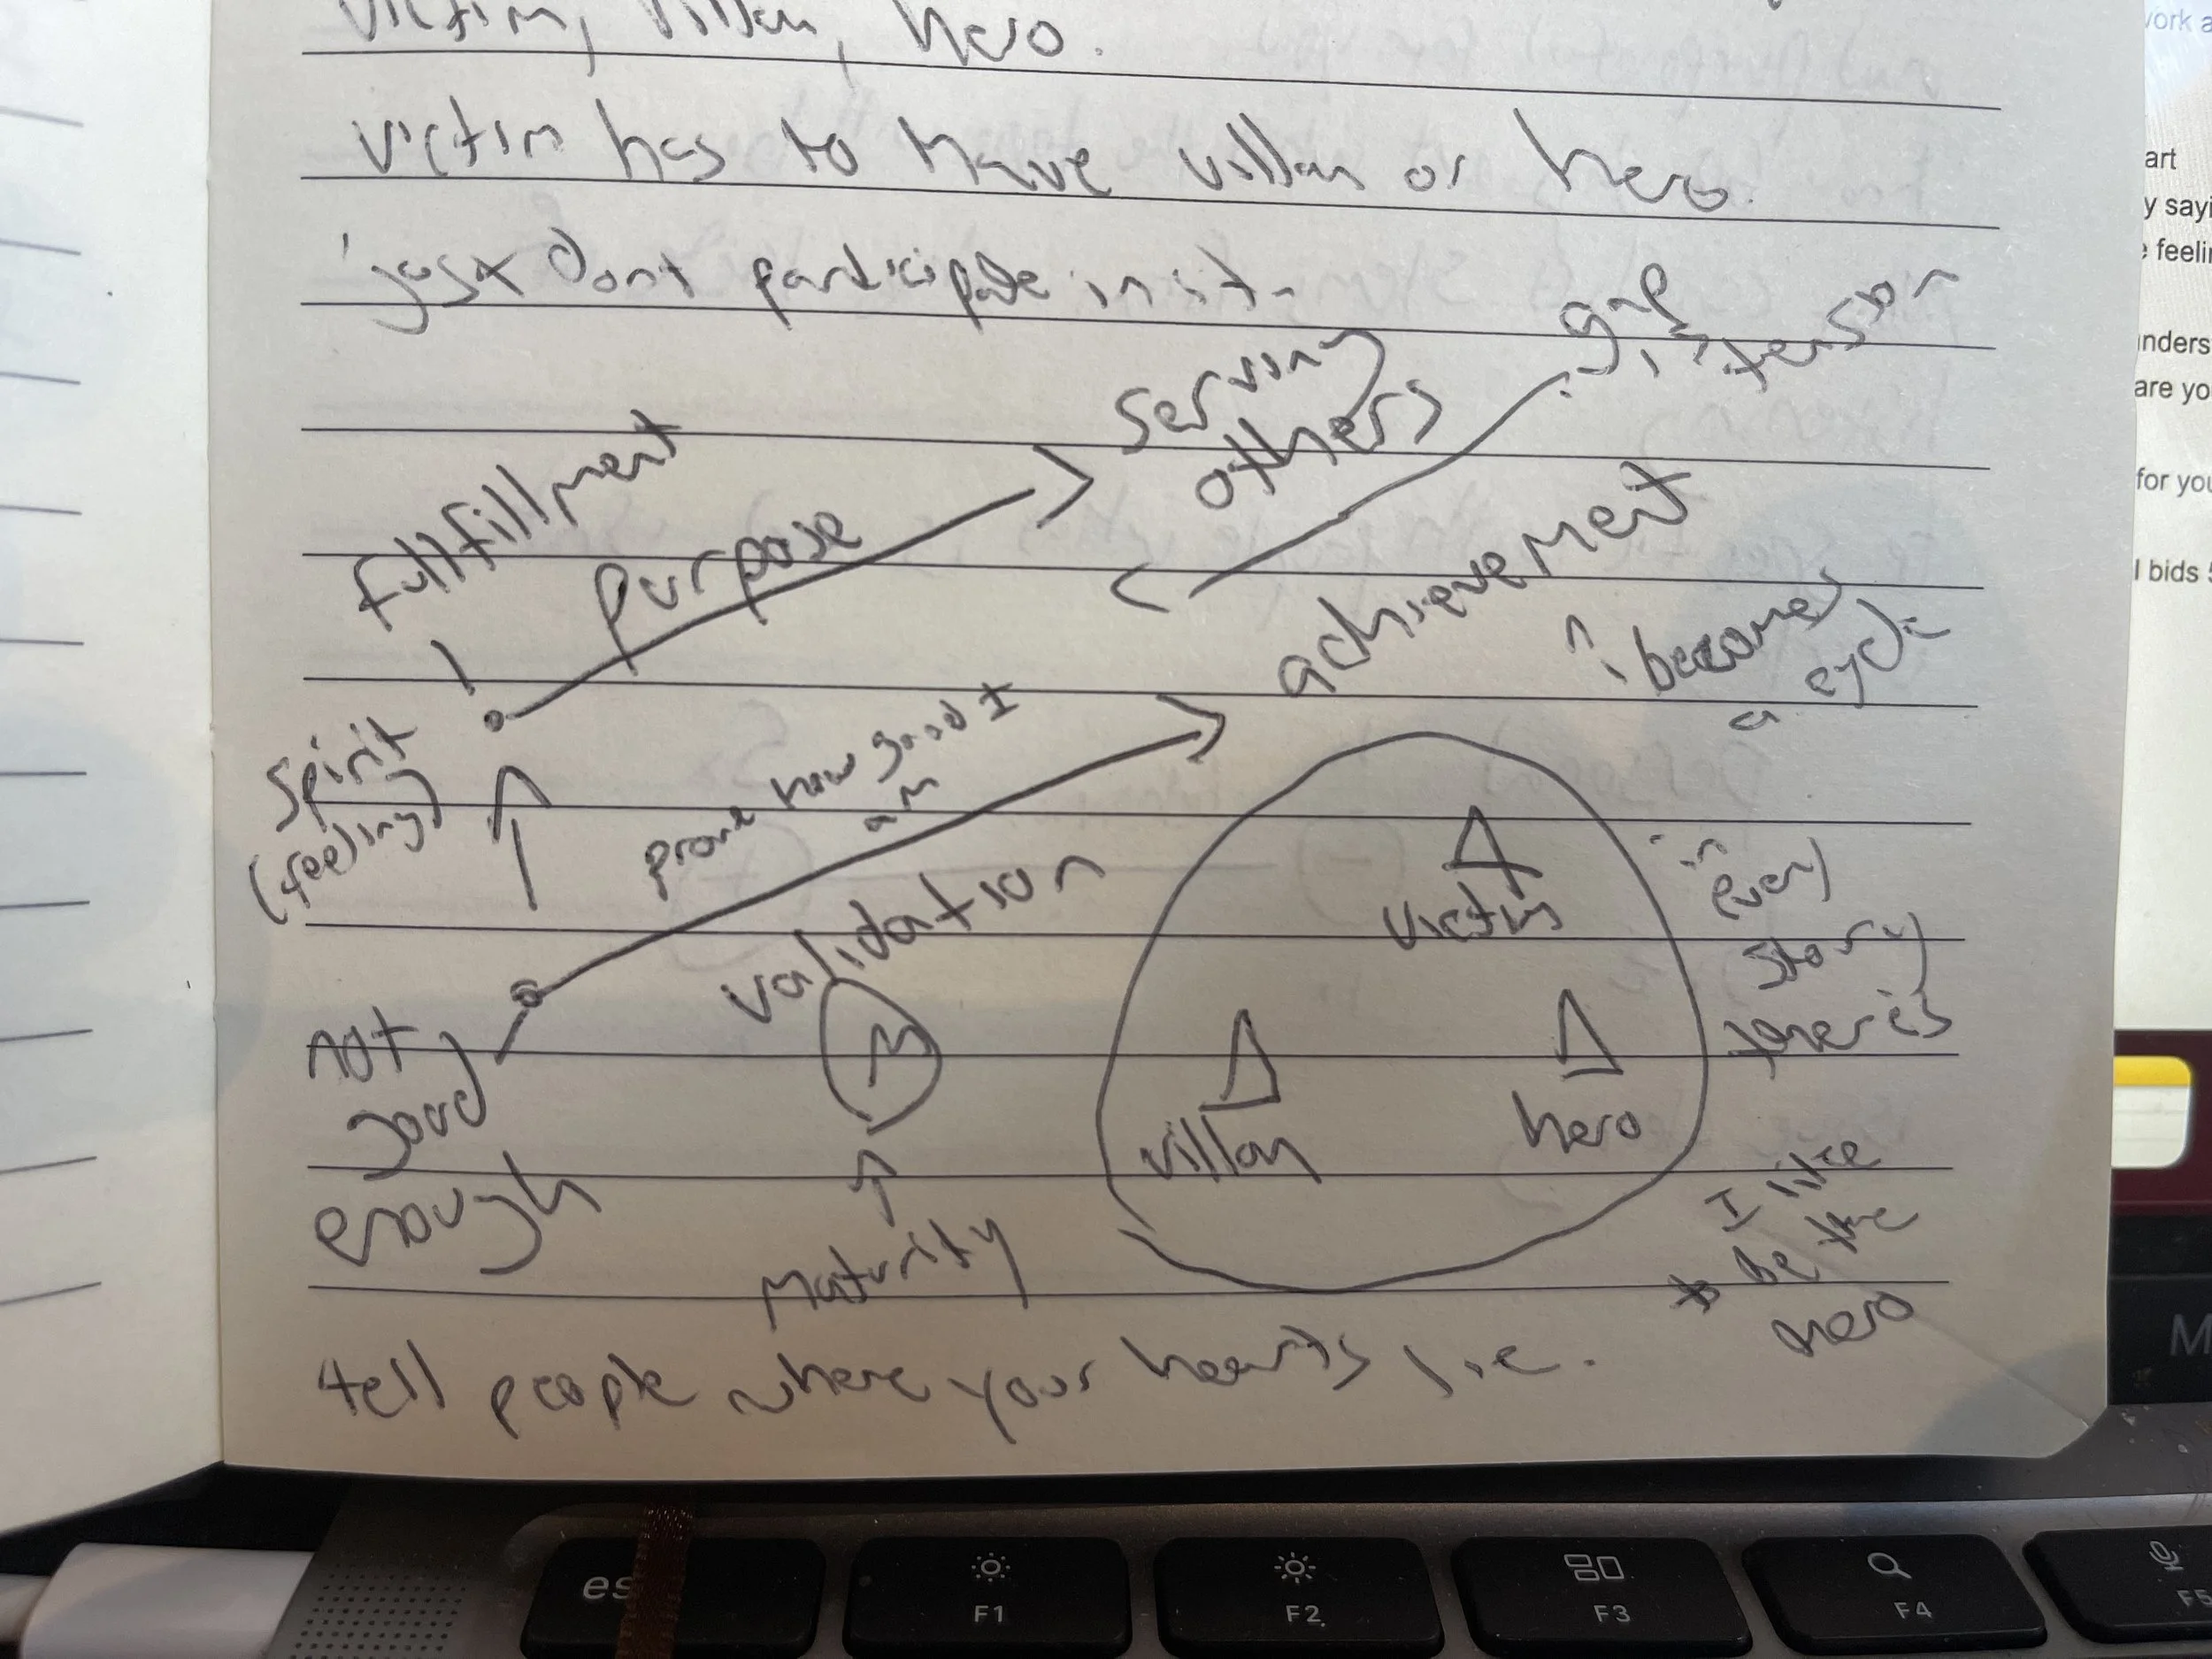 victim, villan, hero.
victim has to have villan or hero.
just dont participate in it.
gap
is tension
serving
others
fullfillment
purpose
achievement
becomes
a cycle
spirit
(feeling)
prove how good I
am
validation
M
maturity
not
good
enough
victim
villan
hero
in
every
story
there is
I like
* be the
hero
tell people where your hearts lie.
work a
art
y sayi
e feelin
unders
are yo
for you
l bids
M
es
F1
F2
F3
F4
F5